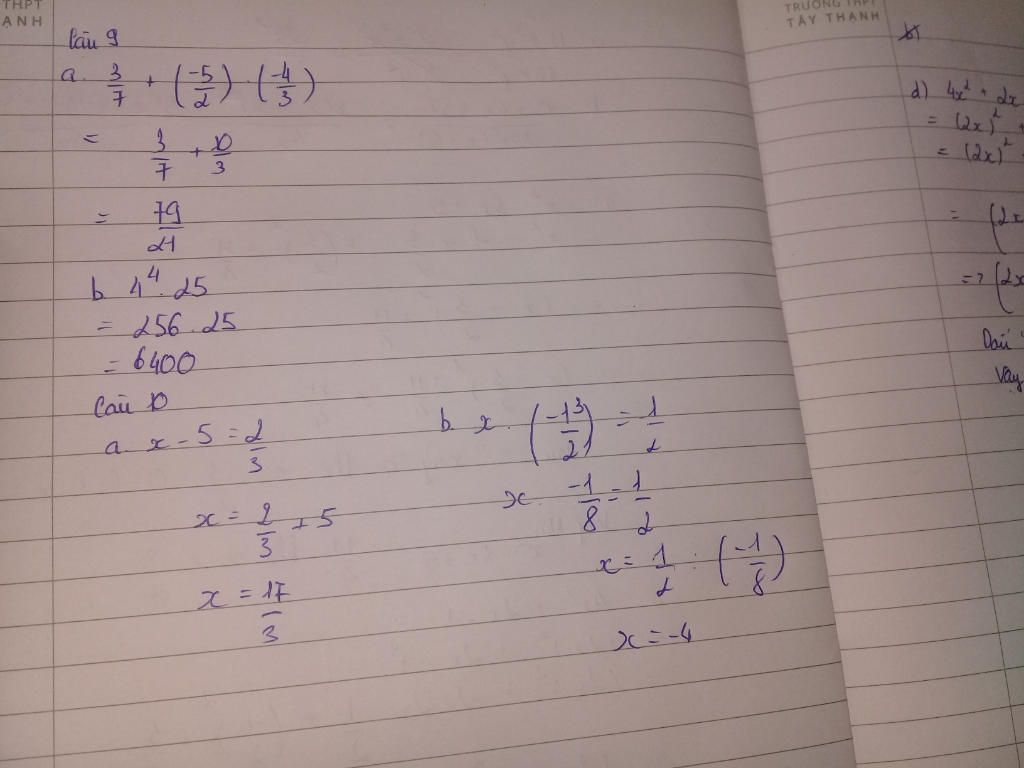 THPT
ANH
Câu 9
a. 3/7 + (-5/2) . (-4/3)
= 3/7 + 10/3
= 79/21
b. 4⁴ . 25
= 256 . 25
= 6400
Câu 10
a. x - 5 = 2/3
x = 2/3 + 5
x = 17/3
b. x . (-1³/2) = 1/2
x . -1/8 = 1/2
x = 1/2 : (-1/8)
x = -4
TRƯỜNG THPT
TÂY THẠNH
d) 4x² + 2x
= (2x)² +
= (2x)²
= (2x
=> (2x
Dấu
Vậy